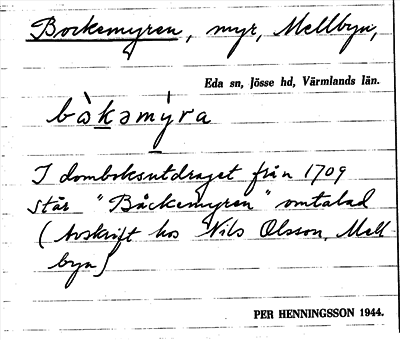 Bockemyren, myr, Mellbyn,
Eda sn, Jösse hd, Värmlands län.
bòkəmýra
I domboksutdraget från 1709
står "Båckemyren" omtalad
(Avskrift hos Nils Olsson, Mell
byn)
PER HENNINGSSON 1944.